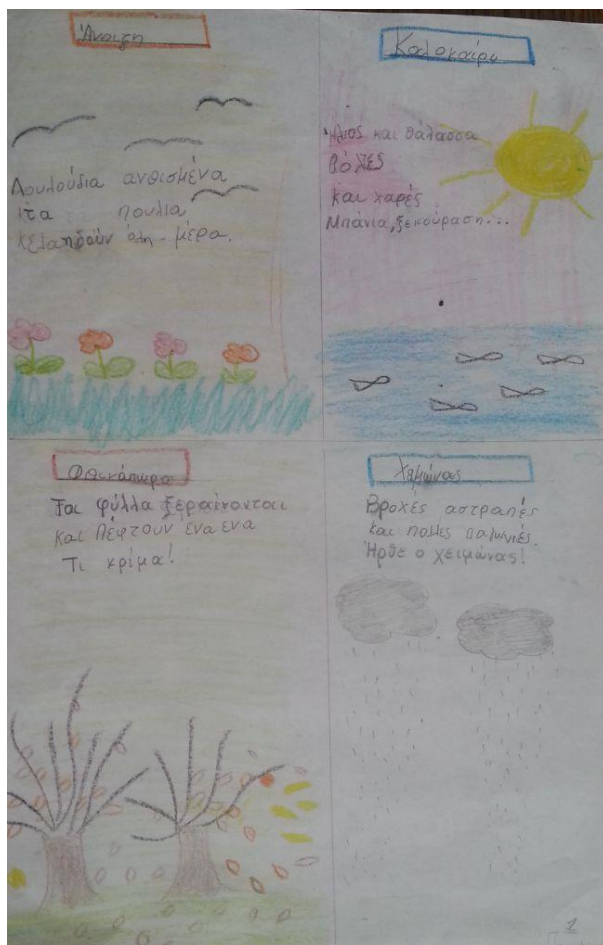 Άνοιξη
Λουλούδια ανθισμένα
πουλιά
όλη-μέρα.
Καλοκαίρι
Ήλιος και θάλασσα
Βόλτες
και χαρές
Μπάνια, ξεκούραση...
Φθινόπωρο
Τα φύλλα ξεραίνονται
και πέφτουν ένα ένα
Τι κρίμα!
Χειμώνας
Βροχές αστραπές
και πολλές
Ήρθε ο χειμώνας!
1